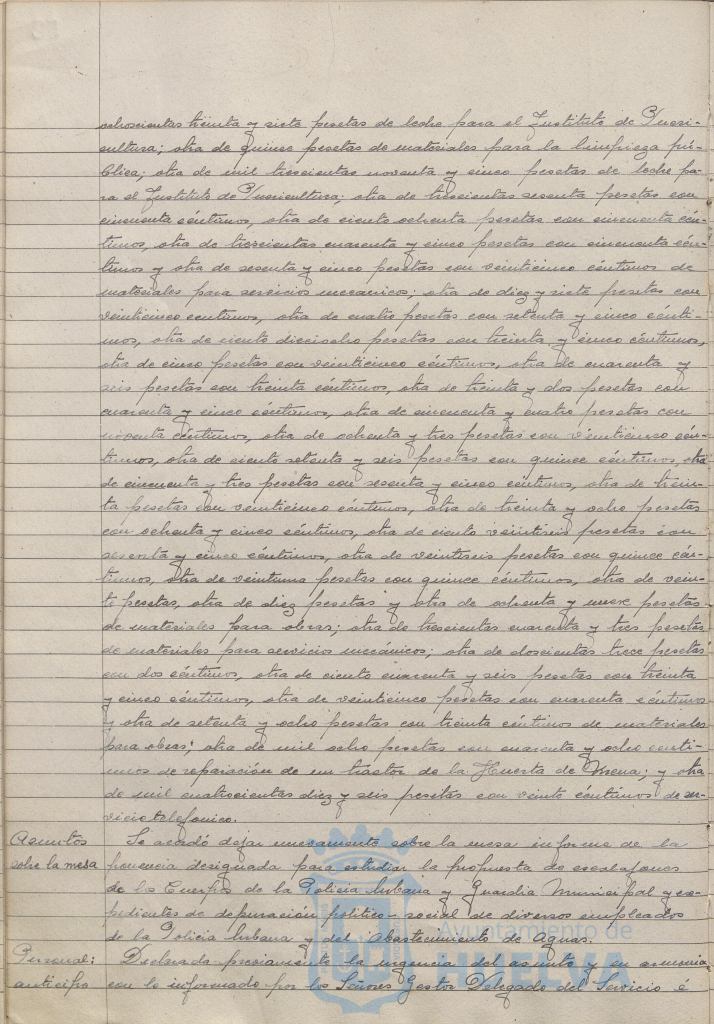 ochocientas treinta y siete pesetas de leche para el Instituto de Pueri-
cultura; otra de quince pesetas de materiales para la limpieza pú-
blica; otra de mil trescientas noventa y cinco pesetas de leche pa-
ra el Instituto de Puericultura; otra de trescientas sesenta pesetas con
cincuenta céntimos, otra de ciento ochenta pesetas con cincuenta cén-
timos, otra de trescientas cuarenta y cinco pesetas con cincuenta cén-
timos y otra de sesenta y cinco pesetas con veinticinco céntimos de
materiales para servicios mecanicos; otra de diez y siete pesetas con
veinticinco centimos, otra de cuatro pesetas con setenta y cinco cénti-
mos, otra de ciento dieciocho pesetas con treinta y cinco céntimos,
otra de cinco pesetas con veinticinco céntimos, otra de cuarenta y
seis pesetas con treinta céntimos, otra de treinta y dos pesetas con
cuarenta y cinco céntimos, otra de cincuenta y cuatro pesetas con
noventa céntimos, otra de ochenta y tres pesetas con veinticinco cén-
timos, otra de ciento setenta y seis pesetas con quince céntimos, otra
de cincuenta y tres pesetas con sesenta y cinco céntimos, otra de trein-
ta pesetas con veinticinco céntimos, otra de treinta y ocho pesetas
con ochenta y cinco céntimos, otra de ciento veintiseis pesetas con
sesenta y cinco céntimos, otra de veintiseis pesetas con quince cén-
timos, otra de veintiuna pesetas con quince céntimos, otra de vein-
te pesetas, otra de diez pesetas y otra de ochenta y nueve pesetas
de materiales para obras; otra de trescientas cuarenta y tres pesetas
de materiales para servicios mecánicos; otra de doscientas trece pesetas
con dos céntimos, otra de ciento cuarenta y seis pesetas con treinta
y cinco céntimos, otra de veinticinco pesetas con cuarenta céntimos
y otra de setenta y ocho pesetas con treinta céntimos de materiales
para obras; otra de mil ocho pesetas con cuarenta y ocho centi-
mos de reparación de un tractor de la Huerta de Mena; y otra
de mil cuatrocientas diez y seis pesetas con veinte céntimos de ser-
vicio telefonico.
Asuntos
sobre la mesa
Se acordó dejar nuevamente sobre la mesa informe de la
ponencia designada para estudiar la propuesta de escalafones
de los Cuerpos de la Policia Urbana y Guardia Municipal y ex-
pedientes de depuración politico-social de diversos empleados
de la Policia Urbana y del Abastecimiento de Aguas.
Personal:
anticipo
Declarada previamente la urgencia del asunto y en armonia
con lo informado por los Señores Gestor Delegado del Servicio é
Ayuntamiento de
HUELVA